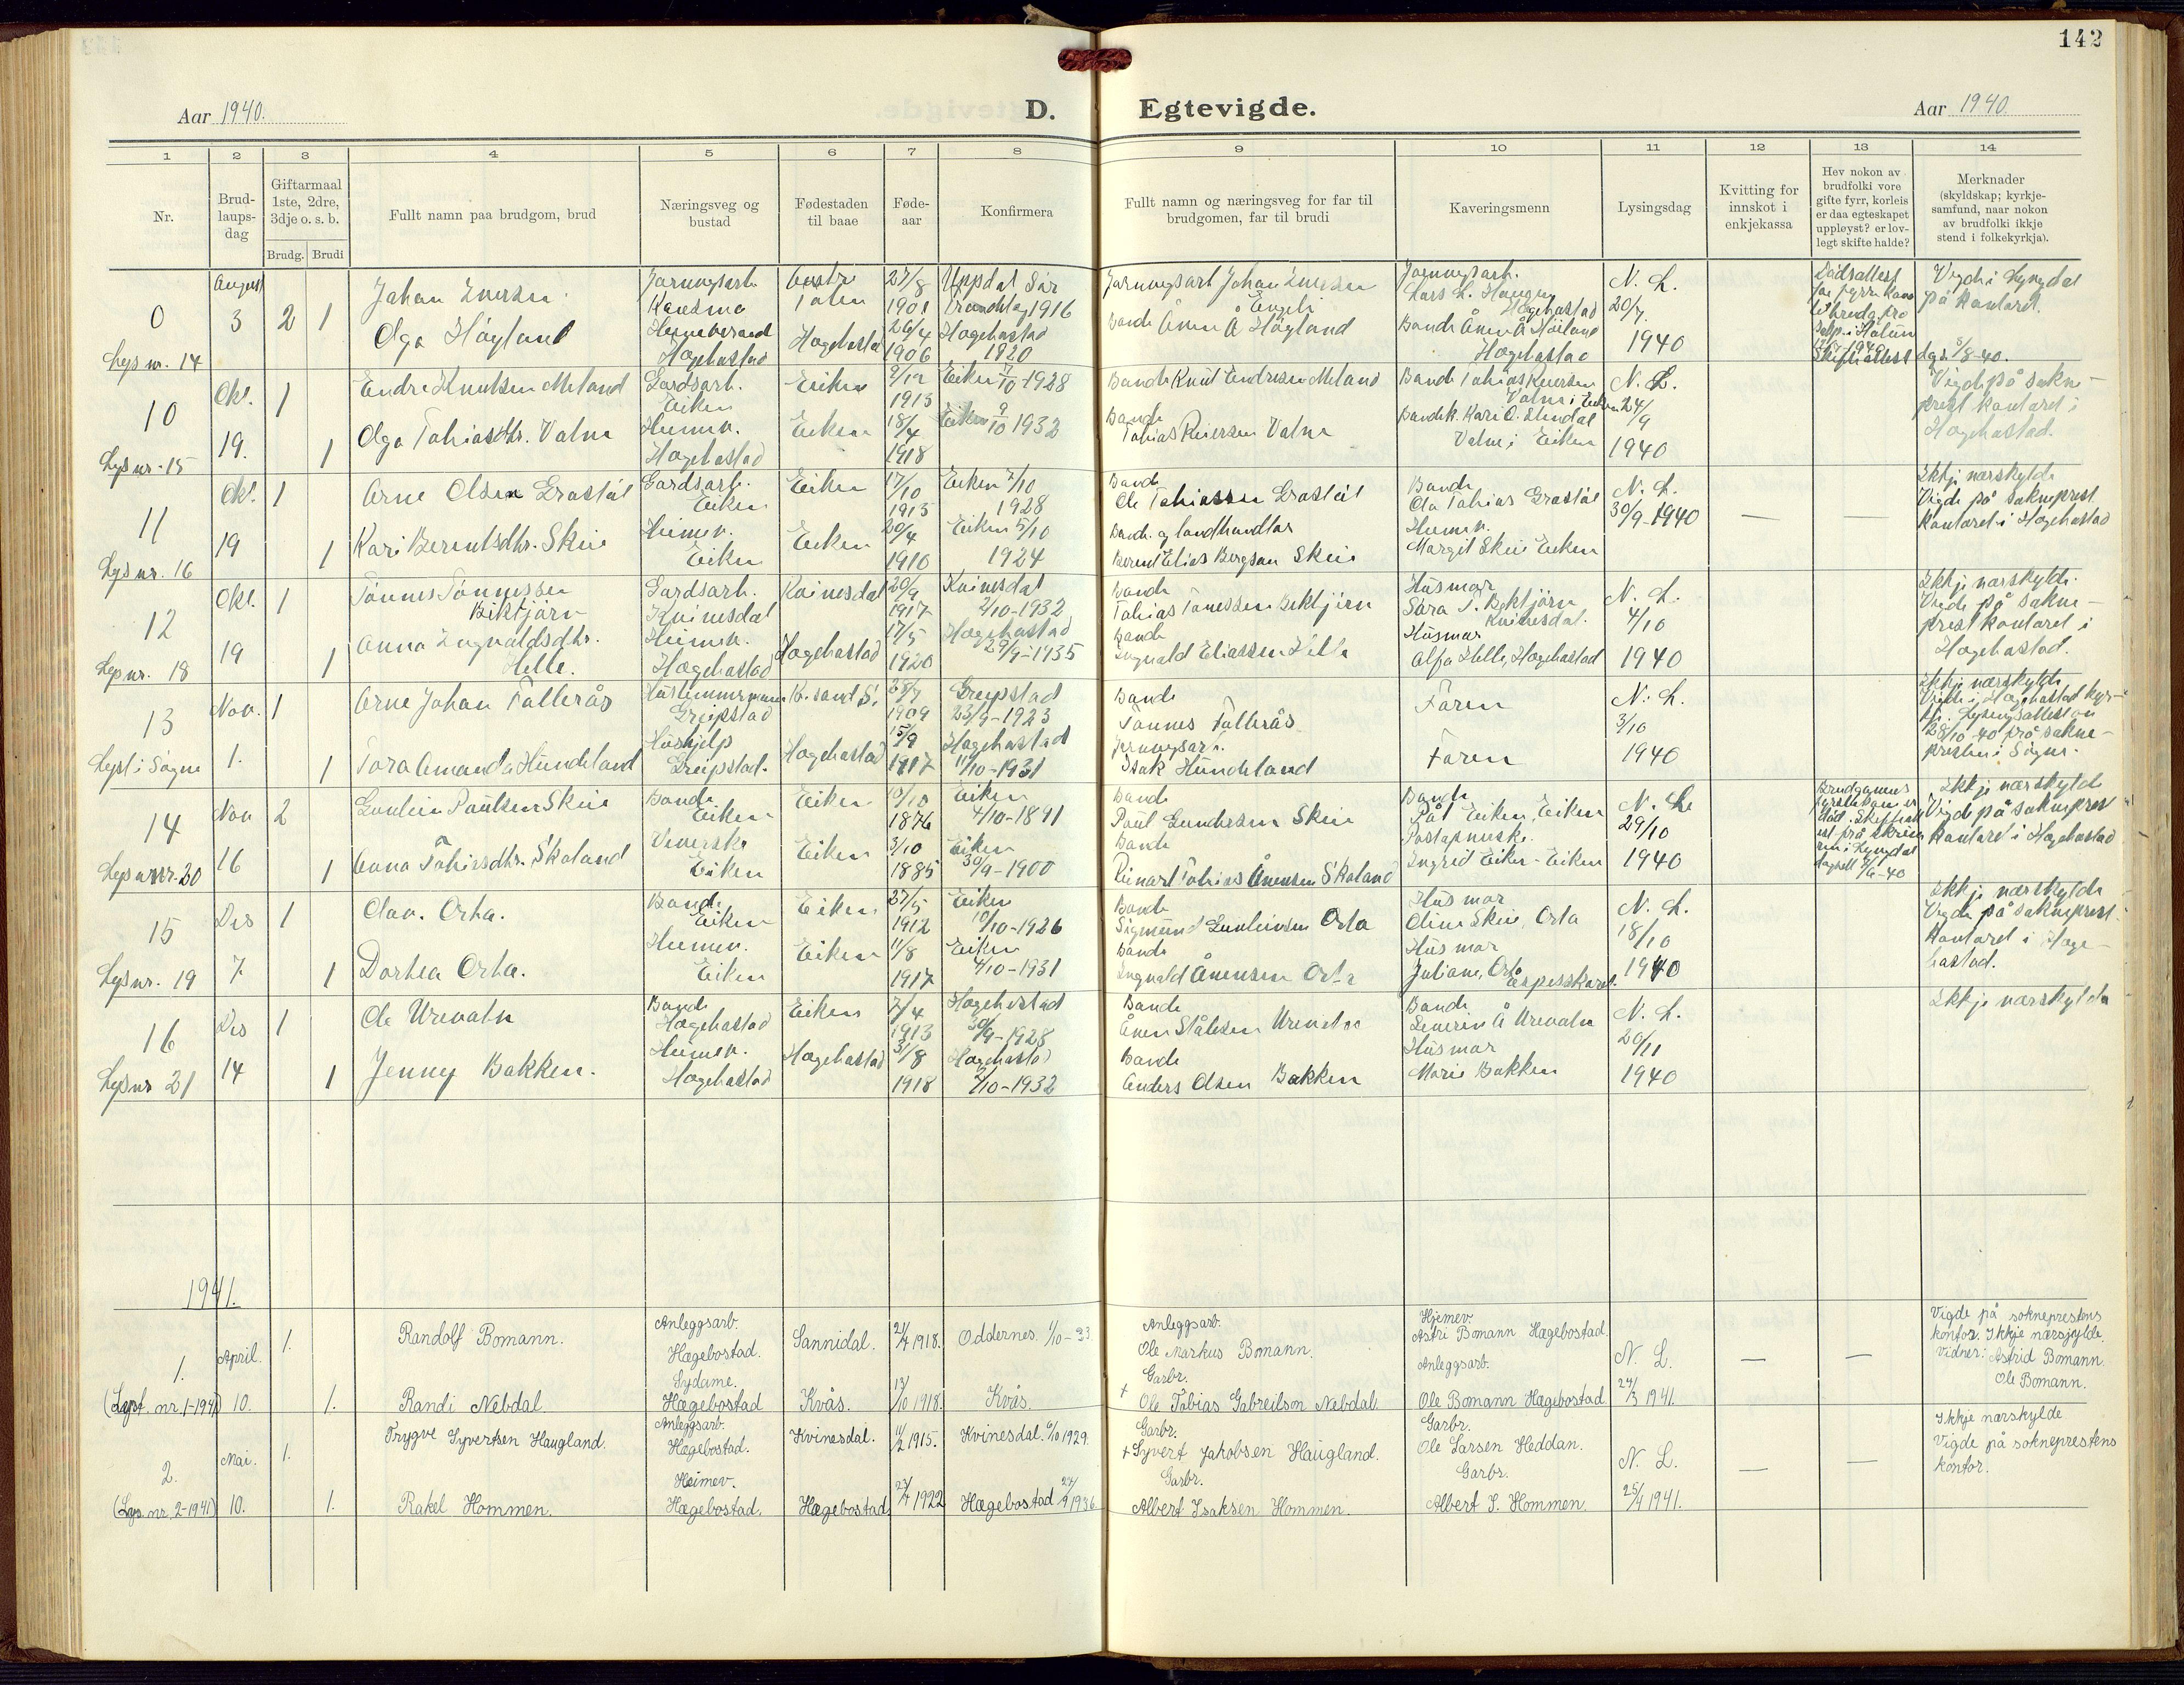 142
Aar 1940.
D.
Egtevigde.
Aar 1940.
1 2 3 4 5 6 7 8 9 10 11 12 13 14
Nr.
Brud-
laups-
dag
Giftarmaal
1ste, 2dre,
3dje o. s. b.
Brudg. Brudi
Fullt namn paa brudgom, brud
Næringsveg og
bustad
Fødestaden
til baae
Føde-
aar
Konfirmera
Fullt namn og næringsveg for far til
brudgomen, far til brudi
Kaveringsmenn
Lysingsdag
Kvitting for
innskot i
enkjekassa
Hev nokon av
brudfolki vore
gifte fyrr, korleis
er daa egteskapet
uppløyst? er lov-
legt skifte halde?
Merknader
(skyldskap; kyrkje-
samfund, naar nokon
av brudfolki ikkje
stend i folkekyrkja).
0
Lys nr. 14
August
3
2 1
Johan
Olga Høyland
Hægebostad
27/8
1901
26/4
1906
Uppdal Sør
Trøndelag 1916
Hægebostad
1920
Johan
Engeli
Bonde Ånen Å Høyland
Lars L. Haugen
Hægebostad
Bonde Ånen Å Høiland
Hægebostad
N. L.
20/7
1940
Dødsattest
Skifteattest dgs. 5/8-40.
Vigde i Lyngdal
på kontoret.
10
Lys nr. 15
Okt.
19.
1
1
Endre Knutsen Meland
Olga Tobiasdtr. Valne
Gardsarb.
Eiken
Heimev.
Hægebostad
Eiken
Eiken
9/12
1913
18/4
1918
Eiken 7/10-1928
Eiken 9/10 1932
Bonde Knut Endresen Meland
Bonde
Tobias Reiersen Valne
Bonde Tobias Reiersen
Valne i Eiken
Bondek. Kari O.
Valne i Eiken
N. L.
24/9
1940
Vigde på sokne-
prest kontoret i
Hægebostad.
11
Lys nr. 16
Okt.
19
1
1
Arne Olsen Grastål
Kari Berentsdtr. Skeie
Gardsarb.
Eiken
Heimev.
Eiken
Eiken
Eiken
17/10
1913
20/4
1910
Eiken 7/10
1928
Eiken 5/10
1924
Bonde
Ole Tobiassen Grastål
Bonde og landhandlar
Berent Elias Bergsen Skeie
Bonde
Ola Tobias Grastål
Heimev.
Margit Skeie Eiken
N. L.
30/9-1940
— —
Ikkje nærskylde
Vigde på sokneprest
kontoret i Hægebostad
12
Lys nr. 18
Okt.
19
1
1
Tønnes Tønnessen
Bektjørn
Anna Ingvaldsdtr.
Helle.
Gardsarb.
Kvinesdal
Heimev.
Hægebostad
Kvinesdal
Hægebostad
20/9
1917
17/5
1920
Kvinesdal
2/10-1932
Hægebostad
29/9-1935
Bonde
Tobias Tønnessen Bektjørn
Bonde
Ingvald Eliassen Helle
Husmor
Sara T. Bektjørn
Kvinesdal.
Husmor
Alfa Helle, Hægebostad
N. L.
4/10
1940
Ikkje nærskylde.
Vigde på sokne-
prest kontoret i
Hægebostad.
13
Lyst i Søgne
Nov.
1.
1
1
Arne Johan Tallerås
Tora Amanda Hundeland
Greipstad
Hushjelp
Greipstad.
K. sand S.
Hægebostad
1909
15/9
1917
Greipstad
23/9-1923
Hægebostad
11/10-1931
Bonde
Tønnes Tallerås
Isak Hundeland
Faren
Faren
N. L.
3/10
1940
Ikkje nærskylde
Vigde i Hægebostad kyr-
Lysingsattest av
28/10-40 frå sokne-
presten i Søgne.
14
Lys nr. 20
Nov
16
2
1
Gunleiv Paulsen Skeie
Anna Tobiasdtr. Skoland
Bonde
Eiken
Eiken
Eiken
Eiken
10/10
1876
3/10
1885
Eiken
4/10-1891
Eiken
30/9-1900
Bonde
Paul Gundersen Skeie
Bonde
Reinart Tobias Ånensen Skoland
Bonde
Pål Eiken, Eiken
Ingrid Eiken - Eiken
N. L.
29/10
1940
Brudgomens
Ikkje nærskylde
Vigde på sokneprest
kontoret i Hægebostad
15
Lys nr. 19
Des
7.
1
1
Olav. Orta.
Dorthea Orta.
Bonde
Eiken
Heimev.
Eiken
Eiken
Eiken
27/5
1912
11/8
1917
Eiken
10/10-1926
Eiken
4/10-1931
Bonde
Sigmund Gunleivsen Orta
Bonde
Ingvald Ånensen Orta
Husmor
Oline Skeie, Orta
Husmor
Juliane Orta
N. L.
18/10
1940
Ikkje nærskylde
Vigde på sokneprest.
kontoret i Hæge-
bostad.
16
Lys nr 21
Des
14
1
1
Ole Urevatn
Jenny Bakken.
Bonde
Hægebostad
Heimev.
Hægebostad
Eiken
Hægebostad
7/4
1913
31/8
1918
Hægebostad
30/9-1928
Hægebostad
2/10-1932
Bonde
Ånen Stålesen Urevatn
Bonde
Anders Olsen Bakken
Bonde
Severin Å Urevatn
Husmor
Marie Bakken
N. L.
20/11
1940
Ikkje nærskylde
1941.
1.
(Lyst. nr. 1-1941)
April.
10.
1.
1.
Randolf Bomann.
Randi Nebdal
Anleggsarb.
Hægebostad.
Sydame.
Hægebostad
Sannidal.
Kvås.
21/4 1918.
13/10 1918.
Oddernes. 1/10-33
Kvås.
Anleggsarb.
Ole Markus Bomann.
Garbr.
+ Ole Tobias Gabreilson Nebdal.
Hjemev.
Astri Bomann Hægebostad.
Anleggsarb.
Ole Bomann Hægebostad
N. L.
24/3 1941.
— —
Vigde på sokneprestens
kontor. Ikkje nærsjylde.
vidner: Astrid Bomann.
Ole Bomann.
2.
(Lys. nr. 2-1941)
Mai.
10.
1.
1.
Trygve Syvertsen Haugland.
Rakel Hommen.
Anleggsarb.
Hægebostad.
Heimev.
Hægebostad.
Kvinesdal.
Hægebostad.
11/2 1915.
27/4 1922
Kvinesdal. 6/10 1929.
Hægebostad 27/9 1936.
Garbr.
+ Syvert Jakobsen Haugland.
Garbr.
Albert Isaksen Hommen.
Garbr.
Ole Larsen Heddan.
Garbr.
Albert I. Hommen.
N. L.
25/4 1941.
— —
Ikkje nærskylde
Vigde på sokneprestens
kontor.